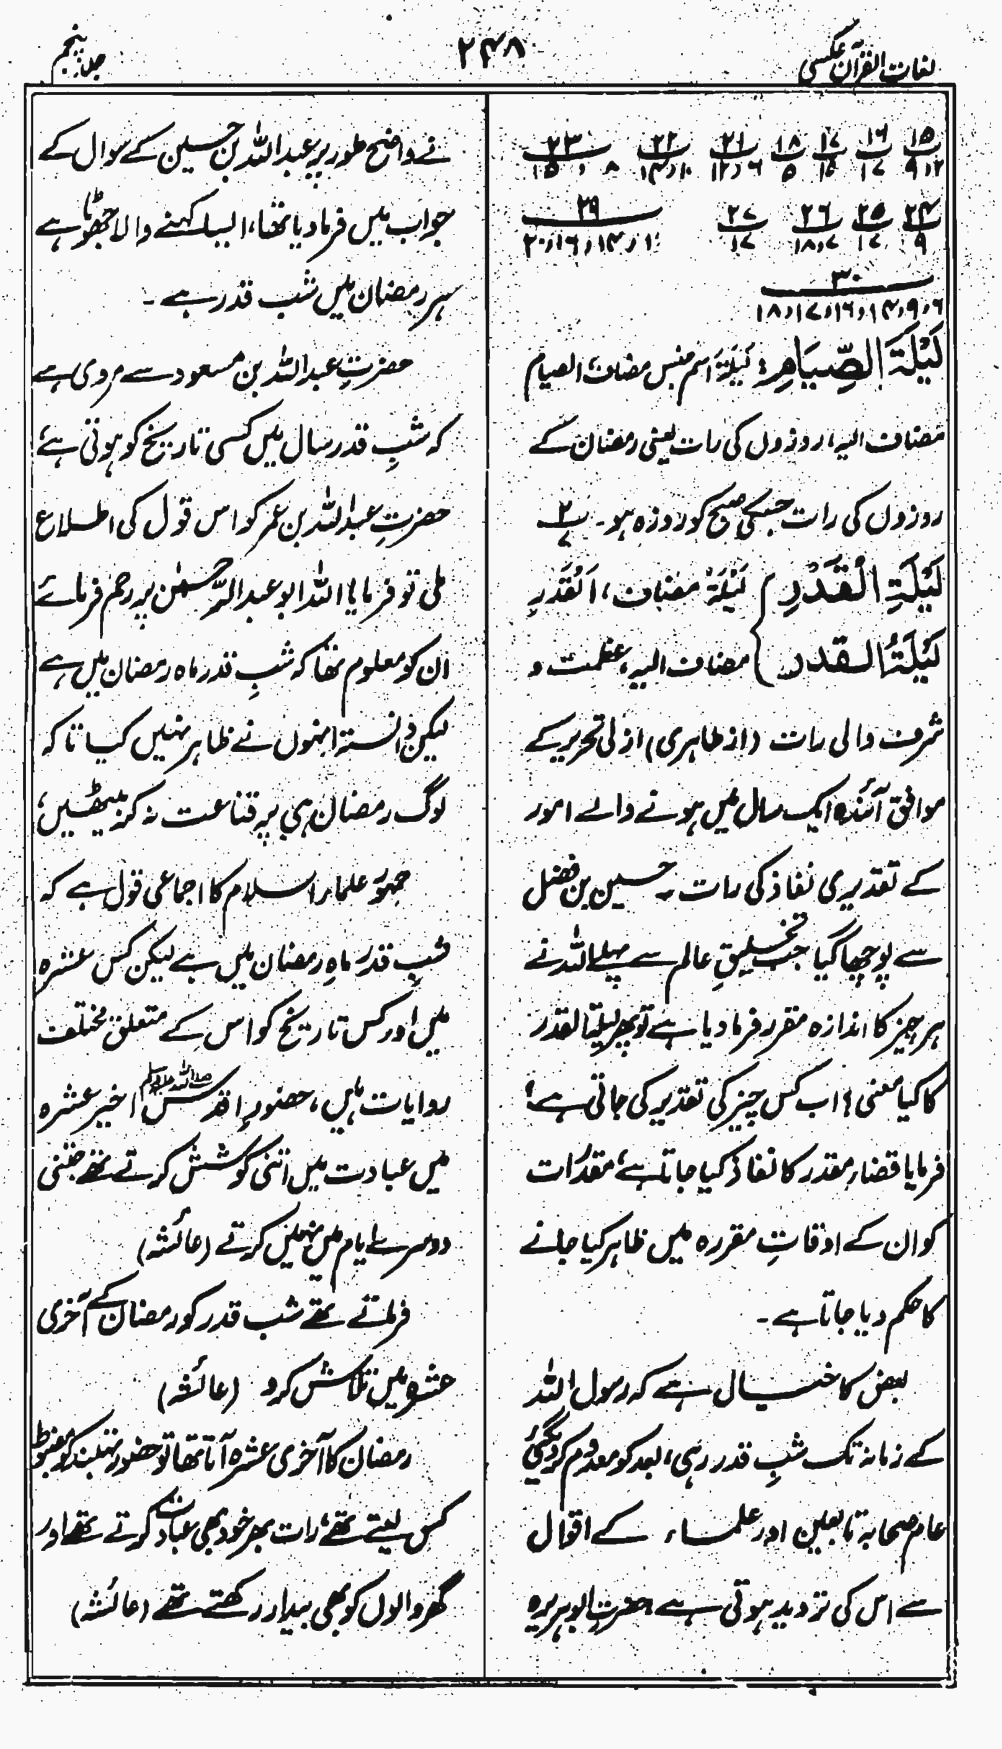 لغات القرآن عکسی
۲۴۸
جلد پنجم
۱۵ ۱۶ ۱۷ ۱۸ ۲۱ ۲۲ ۲۳
۹،۱۲ ۱۷ ۱۵ ۵ ۱۲،۶ ۱۴،۱۰ ۸ ، ۱۵
۲۴ ۲۵ ۲۶ ۲۷ ۲۹
۹ ۱۷ ۱۸،۷ ۱۷ ۱۰،۱۴،۱۶،۲۰
۳۰
۶،۹،۱۴،۱۶،۱۷،۱۸
لَیْلَۃَ الصِّیَامِ: لَیْلَۃَ اسم جنس مضاف، الصیام
مضاف الیہ، روزوں کی رات یعنی رمضان کے
روزوں کی رات جسکی صبح کو روزہ ہو۔ ۲/۷
لَیْلَۃِ الْقَدْرِ } لَیْلَۃُ مضاف، اَلْقَدَرِ
لَیْلَۃُ الْقَدر } مضاف الیہ، عظمت و
شرف والی رات (از ظاہری) ازلی تحریر کے
موافق آئندہ ایک سال میں ہونے والے امور
کے تقدیری نفاذ کی رات۔ حسین بن فضل
سے پوچھا گیا جب تخلیقِ عالم سے پہلے اللہ نے
ہر چیز کا اندازہ مقرر فرما دیا ہے تو پھر لیلۃ القدر
کا کیا معنی؟ اب کس چیز کی تقدیر کی جاتی ہے؟
فرمایا قضاءِ مقدر کا نفاذ کیا جاتا ہے، مقدرات
کو ان کے اوقاتِ مقررہ میں ظاہر کیا جانے
کا حکم دیا جاتا ہے۔
بعض کا خیال ہے کہ رسول اللہ
کے زمانہ تک شبِ قدر رہی، بعد کو معدوم کردی گئی
عام صحابہ تابعین اور علماء کے اقوال
سے اس کی تردید ہوتی ہے، حضرت ابوہریرہ
نے واضح طور پر عبداللہ بن حسین کے سوال کے
جواب میں فرما دیا تھا، ایسا کہنے والا جھوٹا ہے
ہر رمضان میں شب قدر ہے۔
حضرتِ عبداللہ بن مسعود سے مروی ہے
کہ شبِ قدر سال میں کسی تاریخ کو ہوتی ہے،
حضرتِ عبداللہ بن عمر کو اس قول کی اطلاع
ملی تو فرمایا! اللہ ابو عبدالرحمٰن پر رحم فرمائے
ان کو معلوم تھا کہ شبِ قدر ماہ رمضان میں ہے
لیکن دانستہ انہوں نے ظاہر نہیں کیا تا کہ
لوگ رمضان ہی پر قناعت نہ کر بیٹھیں،
جمہور علماءِ اسلام کا اجماعی قول ہے کہ
شبِ قدر ماہِ رمضان میں ہے لیکن کس عشرہ
میں اور کس تاریخ کو اس کے متعلق مختلف
روایات ہیں، حضورِ اقدس صلی اللہ علیہ وسلم اخیر عشرہ
میں عبادت میں اتنی کوشش کرتے تھے جتنی
دوسرے ایام میں نہیں کرتے (عائشہ)
فرماتے تھے شب قدر کو رمضان کے آخری
عشرہ میں تلاش کرو (عائشہ)
رمضان کا آخری عشرہ آتا تھا تو حضور تہبند کو مضبوط
کس لیتے تھے، رات بھر خود بھی عبادت کرتے تھے اور
گھر والوں کو بھی بیدار رکھتے تھے (عائشہ)